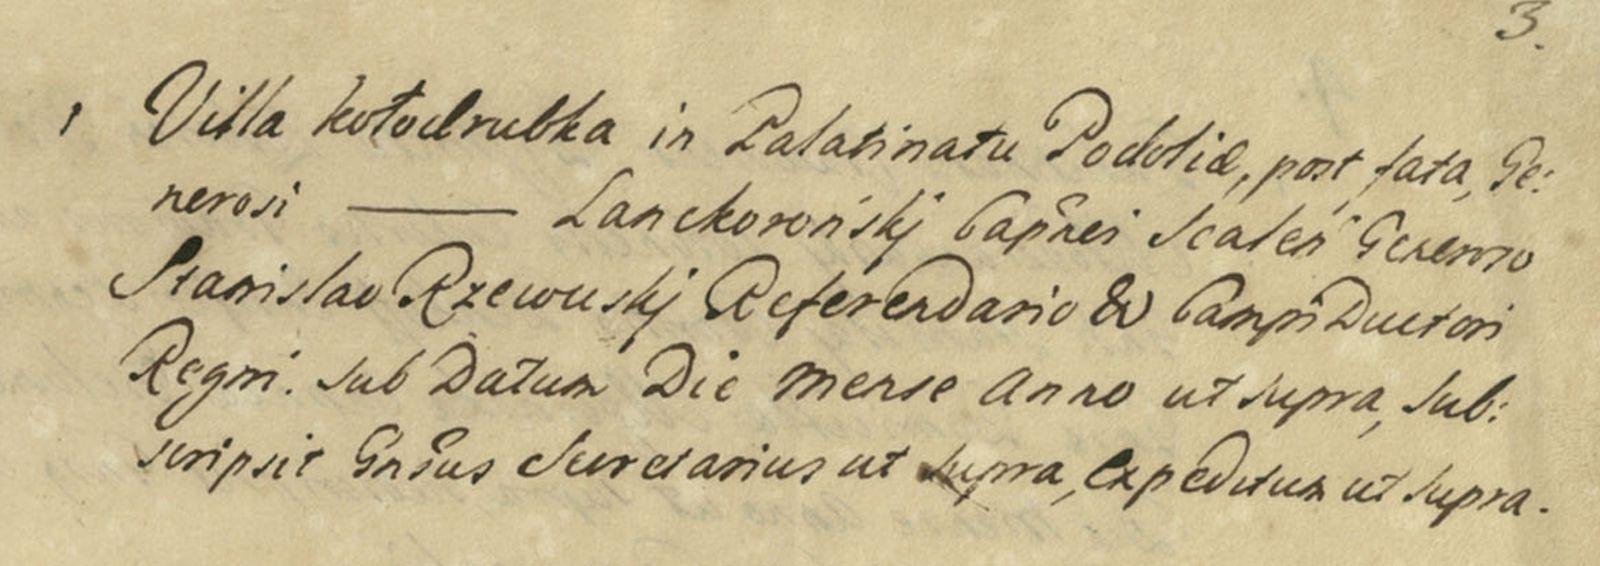 3.
1 Villa Kołodrubka in Palatinatu Podoliæ, post fata, Ge:
nerosi —— Lanckorońskj Capnei Scalen Generoso
Stanislao Rzewuskj Referendario & Campi Ductori
Regni. Sub Datum Die Mense Anno ut supra, Sub:
scripsit Gnsus Secretarius ut supra, Expeditum ut supra.